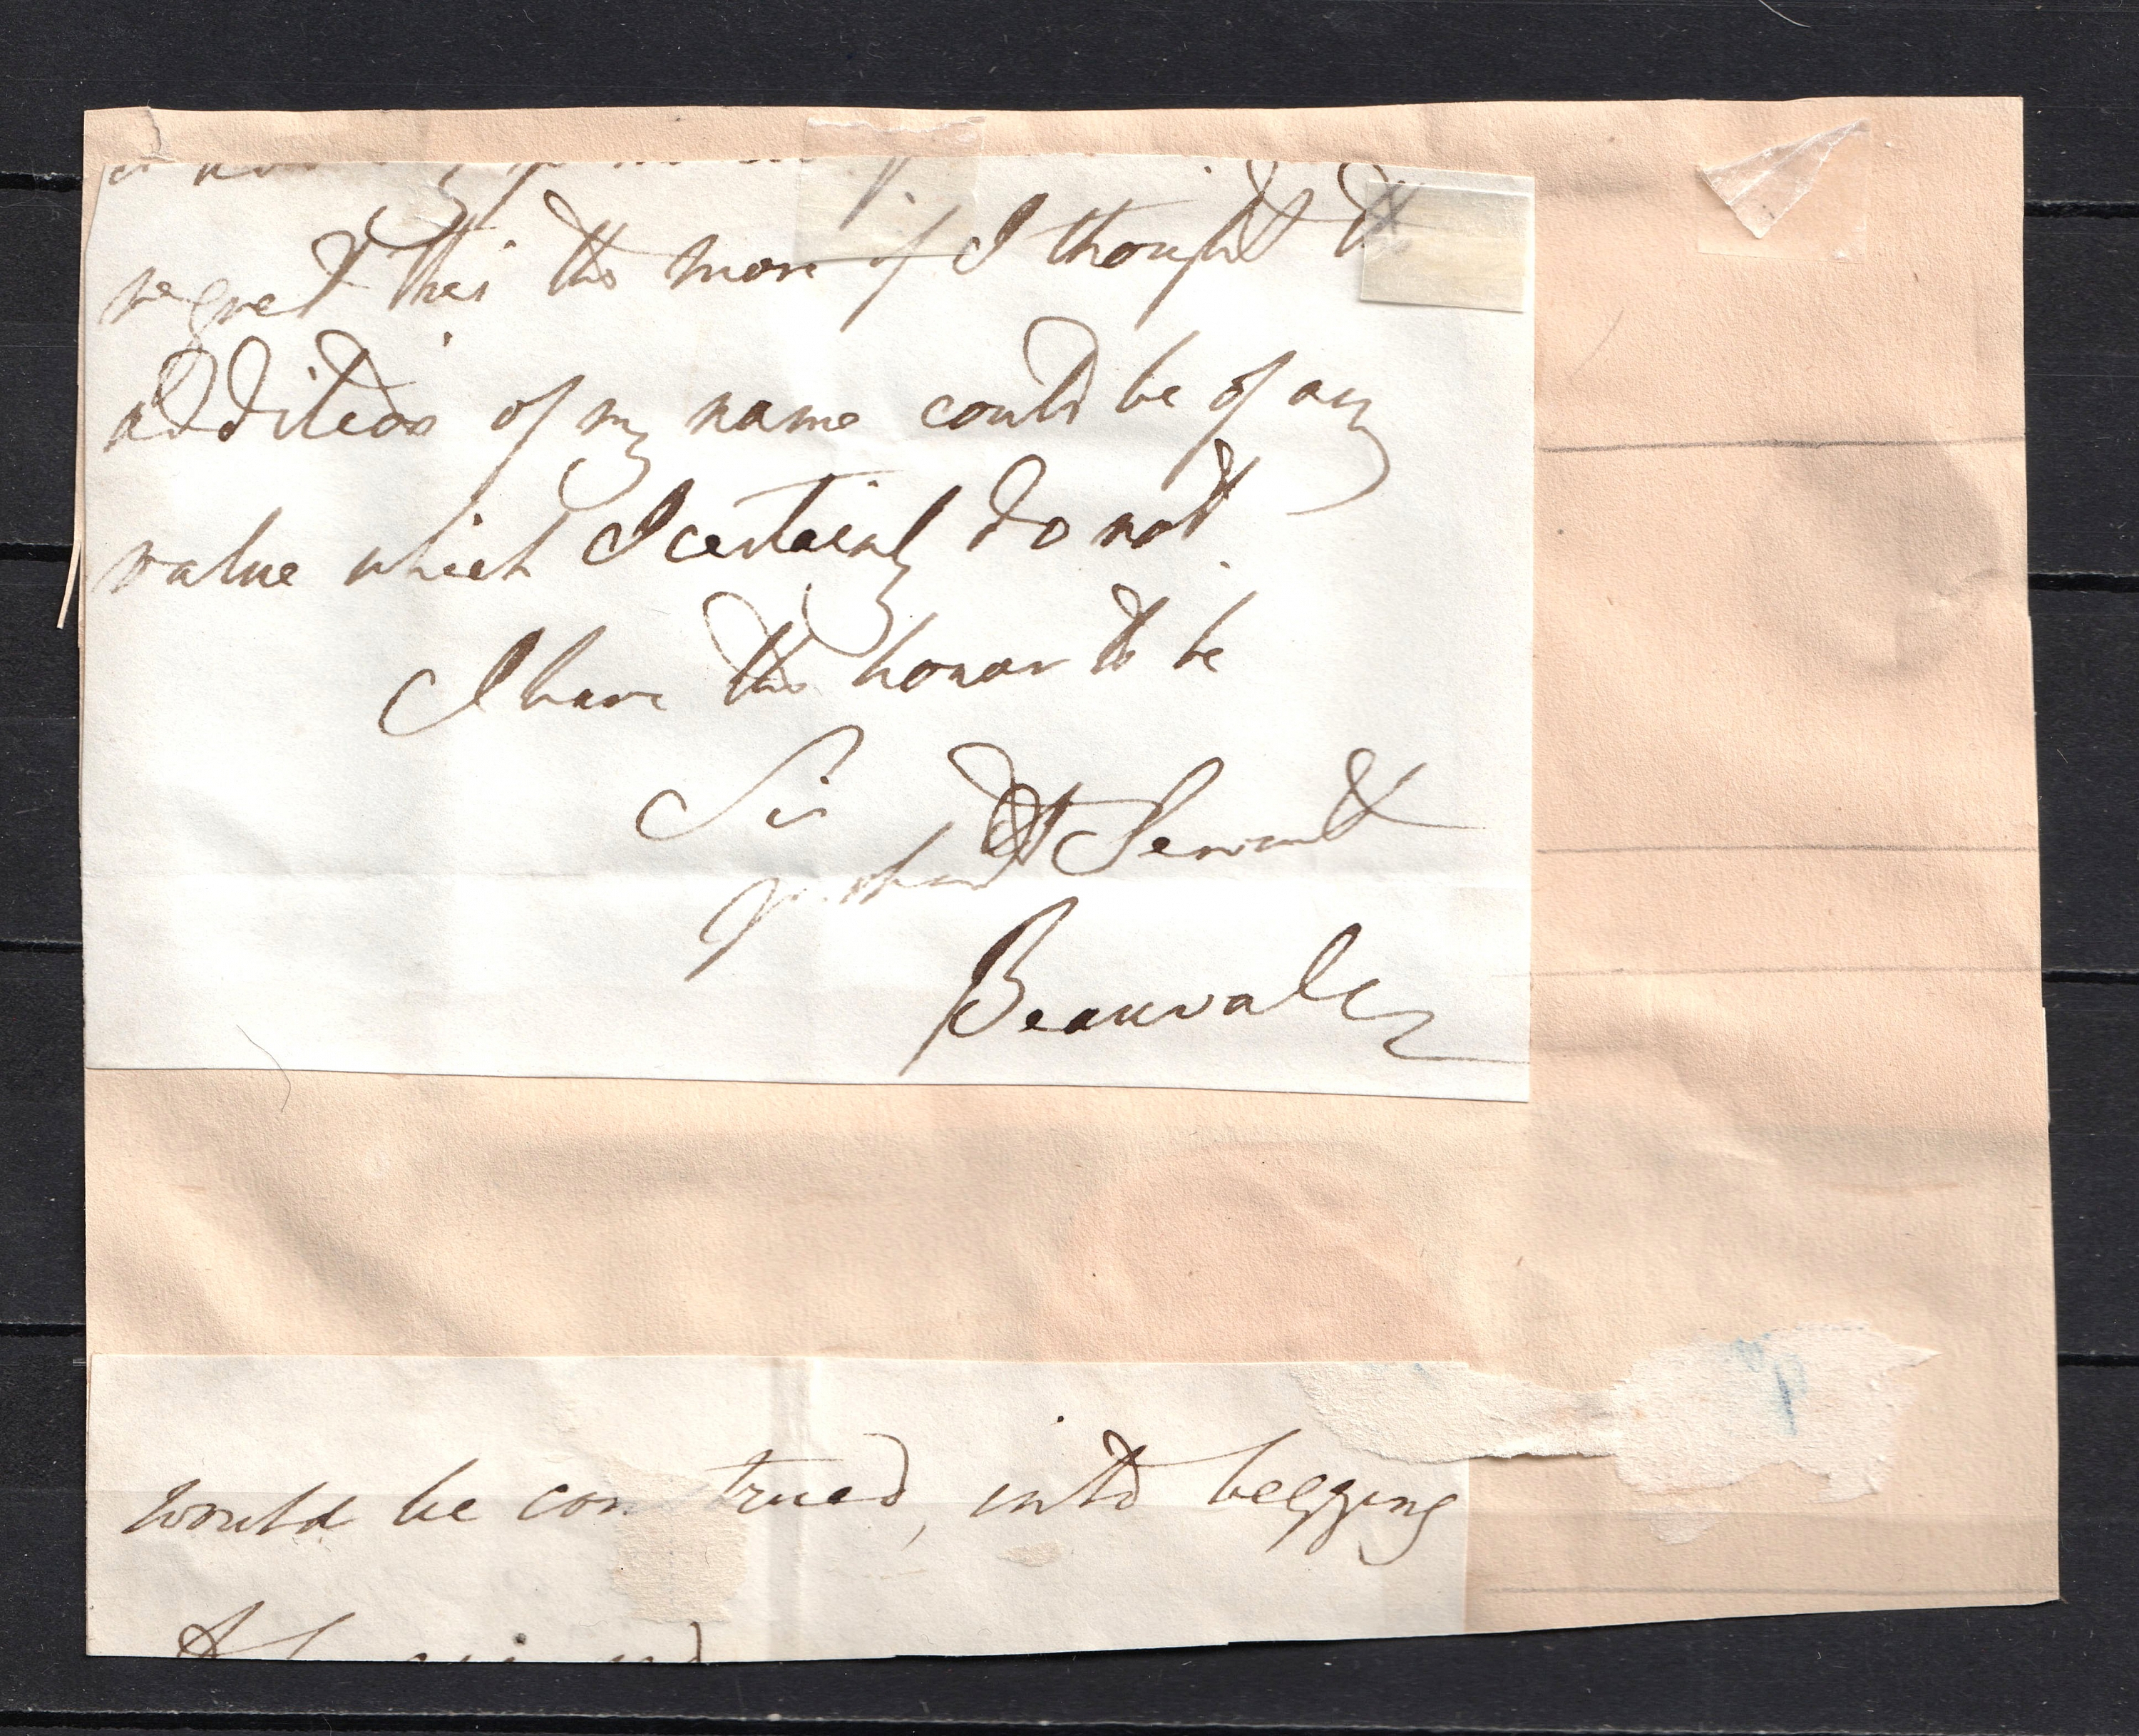 regret this the more if I thought the
addition of my name could be of any
value which I certainly do not.
I have the honor to be
Sir
Servant
Beauvale
would be con trued, into begging